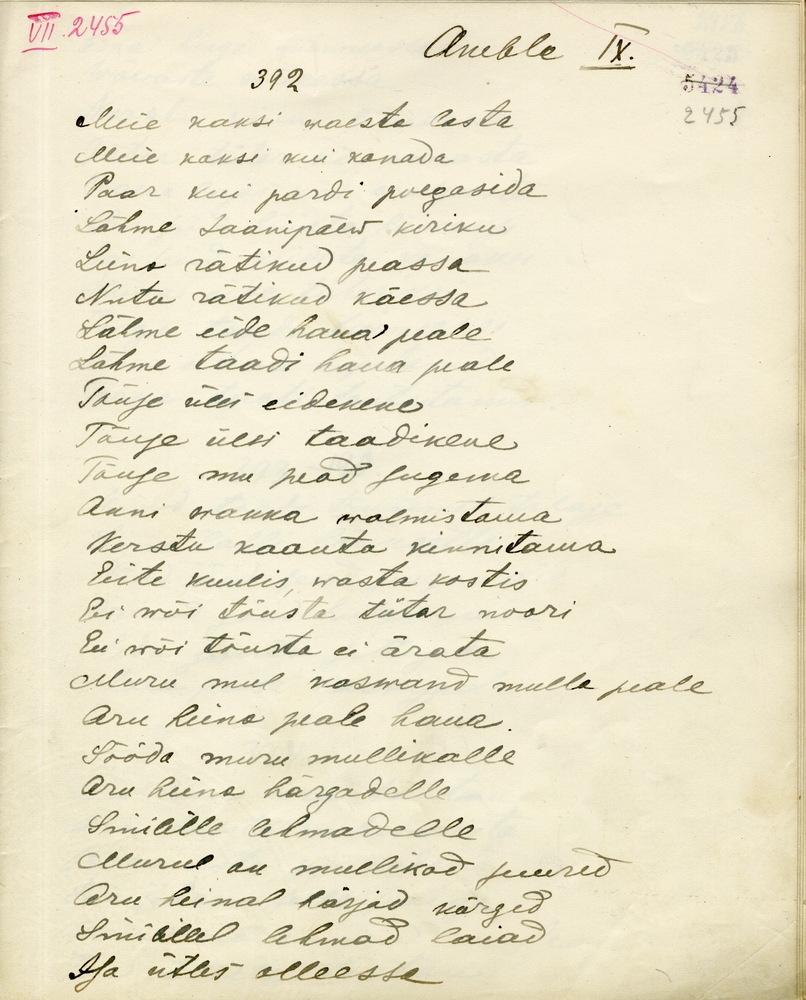 VII. 2455
Aneble IX.
392
5424
2455
Meie kaksi waesta lasta
Meie kaksi kui kanada
Paar kui pardi poegasida
Lähme Laanipäew kiriku
Liina rätikud peassa
Nutu rätikud käessa
Lähme eide haua peale
Lähme taadi haua peale
Tõuse üles eidekene
Tõuse ülesi taadikene
Tõuse mu pead sugema
Anni wakka walmistama
Versta kaanta kinnitama
Eite kuulis, wasta kostis
Ei wõi tõusta tütar noori
Ei wõi tõusta ei ärata
Muru mul kaswand mulla peale
Aru heina peale haua.
Sööda muru mullikalle
Aru heina härgadelle
Sinilille lehmadelle
Murul on mullikad suured
Aru heinal härjad kärged
Sinilillel lehmad laiad
Isa ütles olleessa